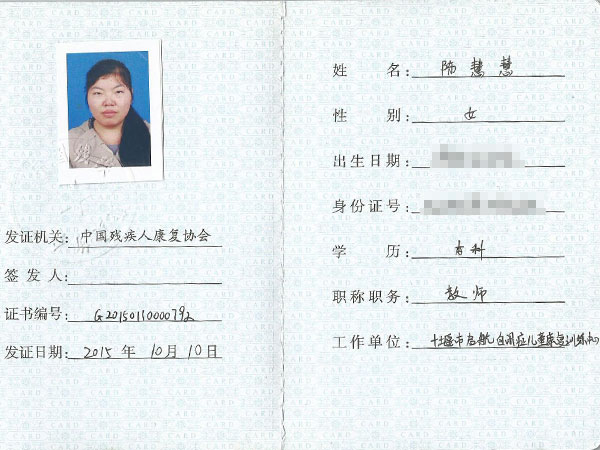 发证机关: 中国残疾人康复协会
签发人:
证书编号: G20150110000792
发证日期: 2015 年 10 月 10 日
姓 名: 陈慧慧
性 别: 女
出生日期:
身份证号:
学 历: 本科
职称职务: 教师
工作单位: 十堰市启航自闭症儿童康复训练